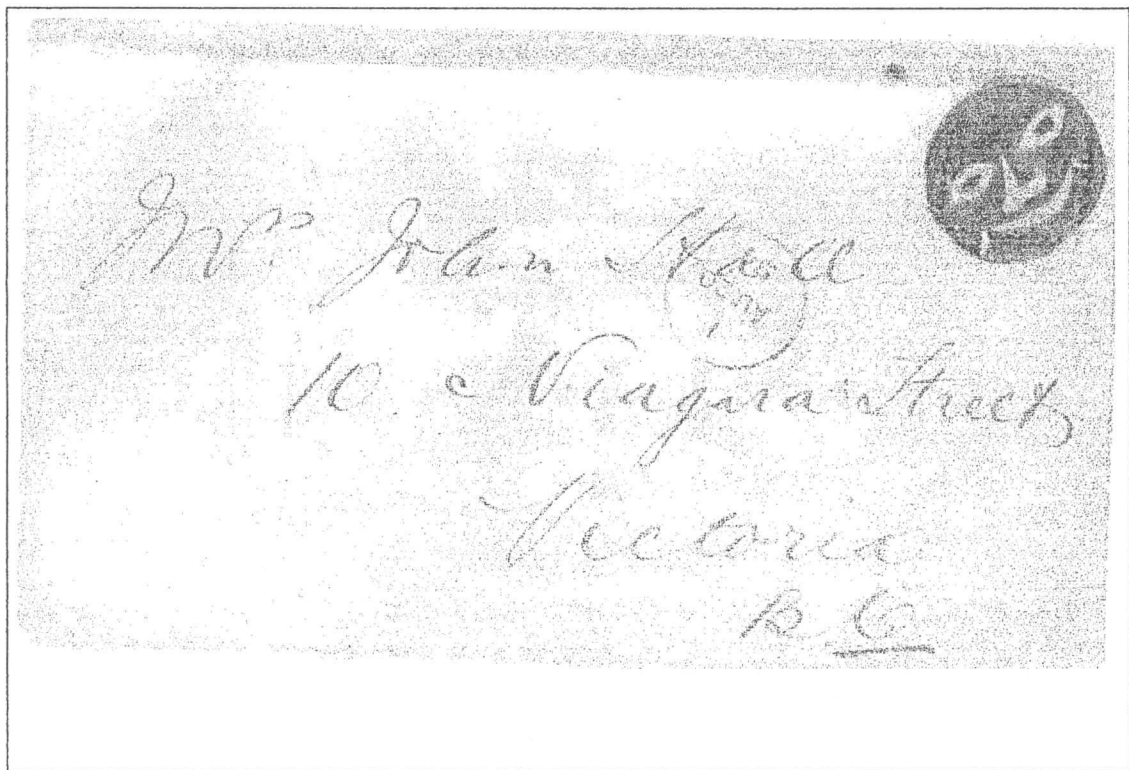 Mrs John Hall
10 Niagara Street
Victoria
B C